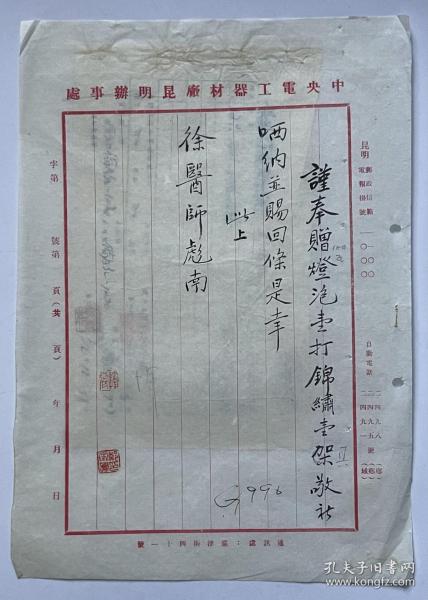 中央電工器材廠昆明辦事處
昆明
郵政信箱
電報掛號 一〇〇〇
自動電話
謹奉贈燈泡壹打錦繡壹架敬祈
哂納並賜回條是幸
此上
徐醫師彪南
字第 號第 頁(共 頁) 年 月 日
G996
通訊處:
街四十一號
孔夫子旧书网
www.kongfz.com